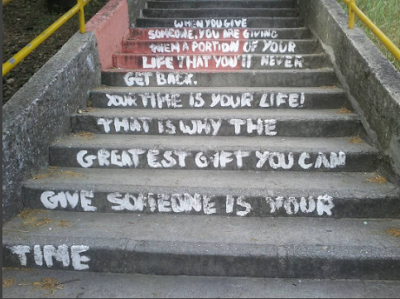 WHEN YOU GIVE
SOMEONE, YOU ARE GIVING
THEM A PORTION OF YOUR
LIFE THAT YOU'LL NEVER
GET BACK.
YOUR TIME IS YOUR LIFE!
THAT IS WHY THE
GREATEST GIFT YOU CAN
GIVE SOMEONE IS YOUR
TIME